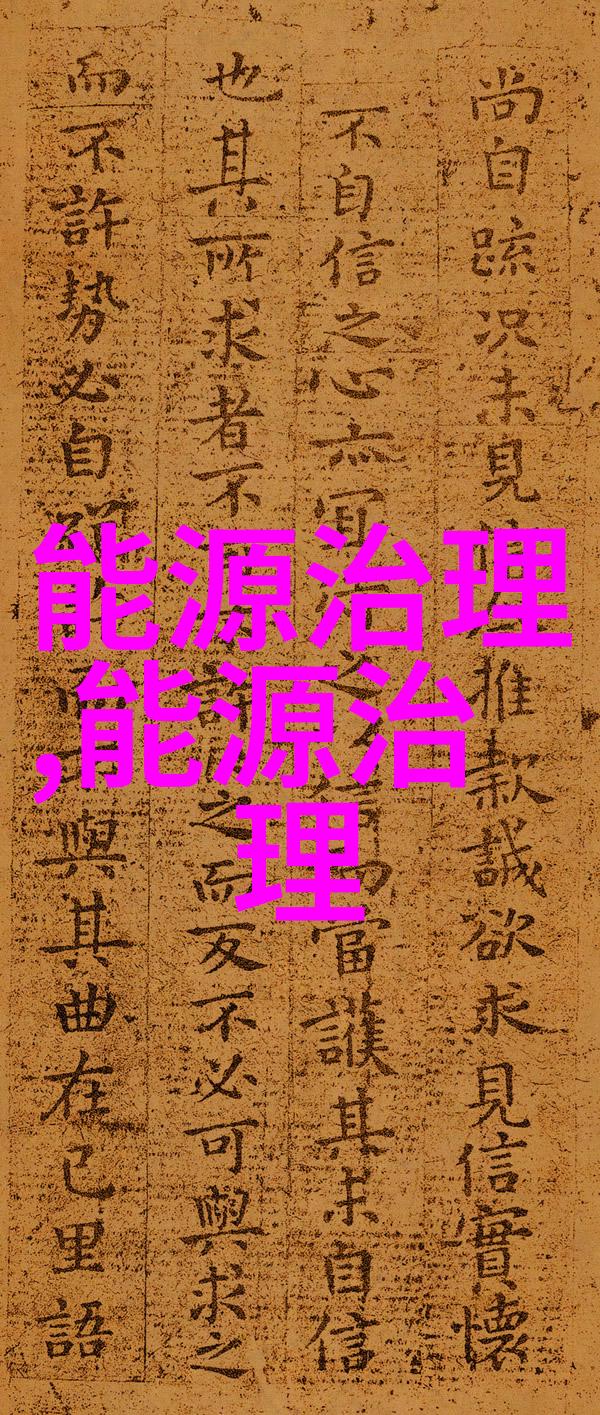 尚自踈况未見推款誠欲求見信實懷
不自信之心亦冝之信而當護其未自信
也其所求者不許之而反不必可與求之
而不許勢必自而與其曲在己里語
能源治理
,能源治
理